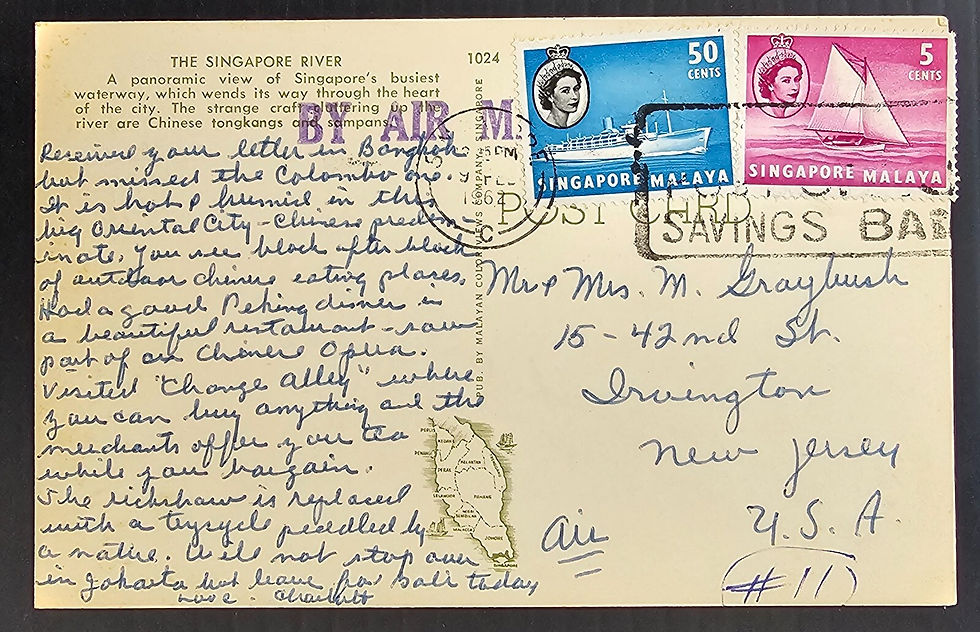 THE SINGAPORE RIVER
A panoramic view of Singapore's busiest
waterway, which wends its way through the heart
of the city. The strange craft cluttering up the
river are Chinese tongkangs and sampans.
1024
BY AIR M
Received your letter in Bangkok
but missed the Colombo one.
It is hot & humid in this
big Oriental City - Chinese predom-
inate. You see block after block
of outdoor chinese eating places.
Had a good Peking dinner in
a beautiful restaurant - saw
part of an Chinese Opera.
Visited "Change Alley" where
you can buy anything and the
merchants offer you tea
while you bargain.
The rickshaw is replaced
with a trysycle peddled by
a native. Will not stop over
in Jakarta but leave for Bali today
Love -
PUB. BY MALAYAN COLOR VIEWS COMPANY, SINGAPORE
PERLIS
KEDAH
PENANG
PERAK
KELANTAN
SELANGOR
PAHANG
NEGRI
SEMBILAN
MALACCA
JOHORE
SINGAPORE
50
CENTS
SINGAPORE MALAYA
5
CENTS
SINGAPORE MALAYA
PM
POST CARD
SAVINGS BA
Mr & Mrs. M. Graybush
15-42nd St.
Irvington
New Jersey
U.S.A
air
#11